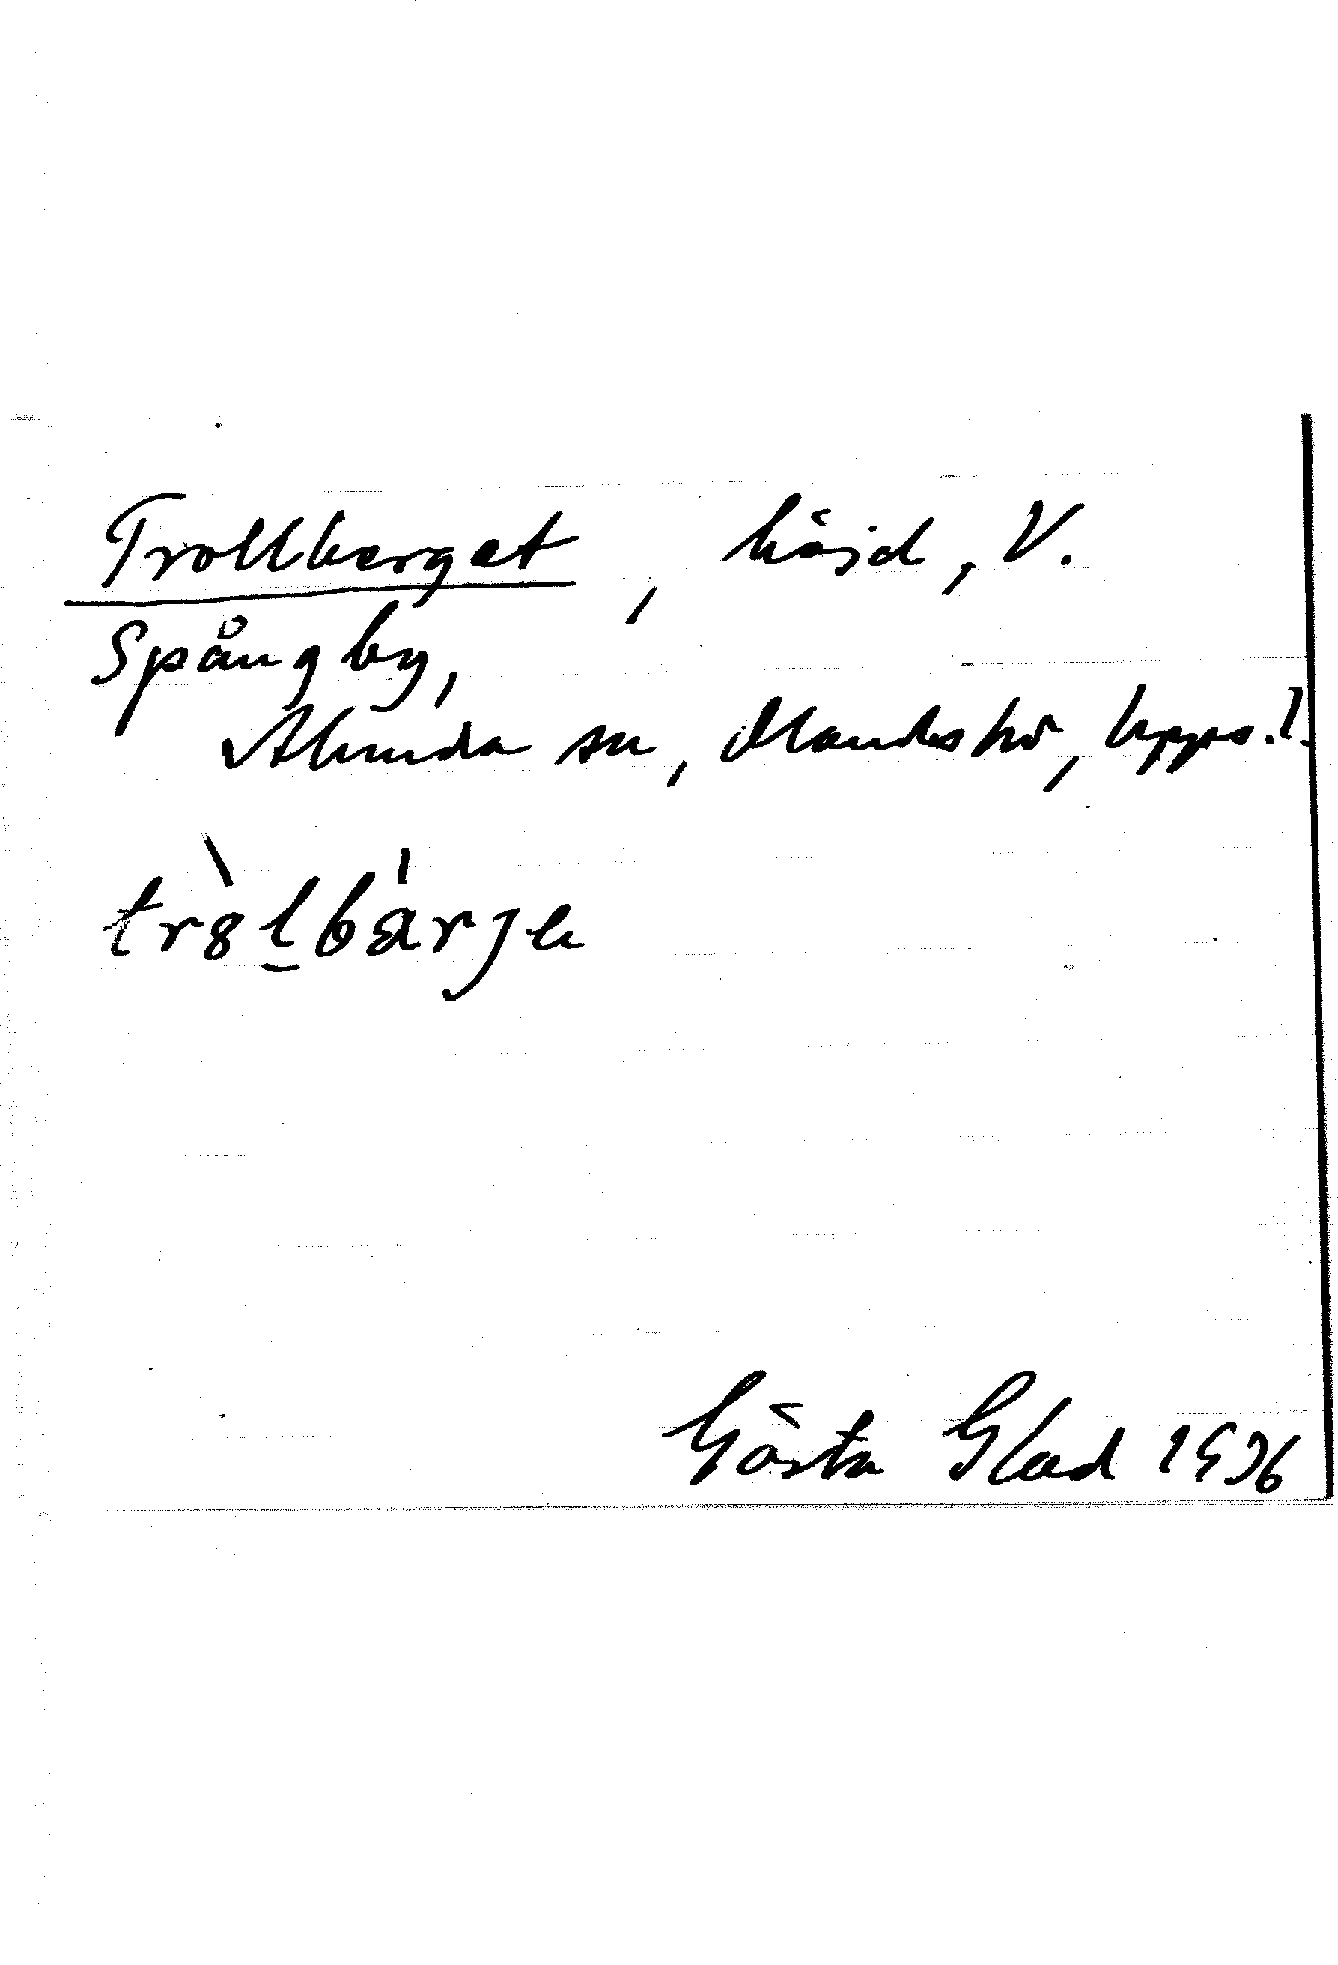 Trollberget, höjd, V.
Spångby,
Alunda sn, Olands hd, Upps. l.
tr8̀lbá̈rje
Gösta Glad 1936